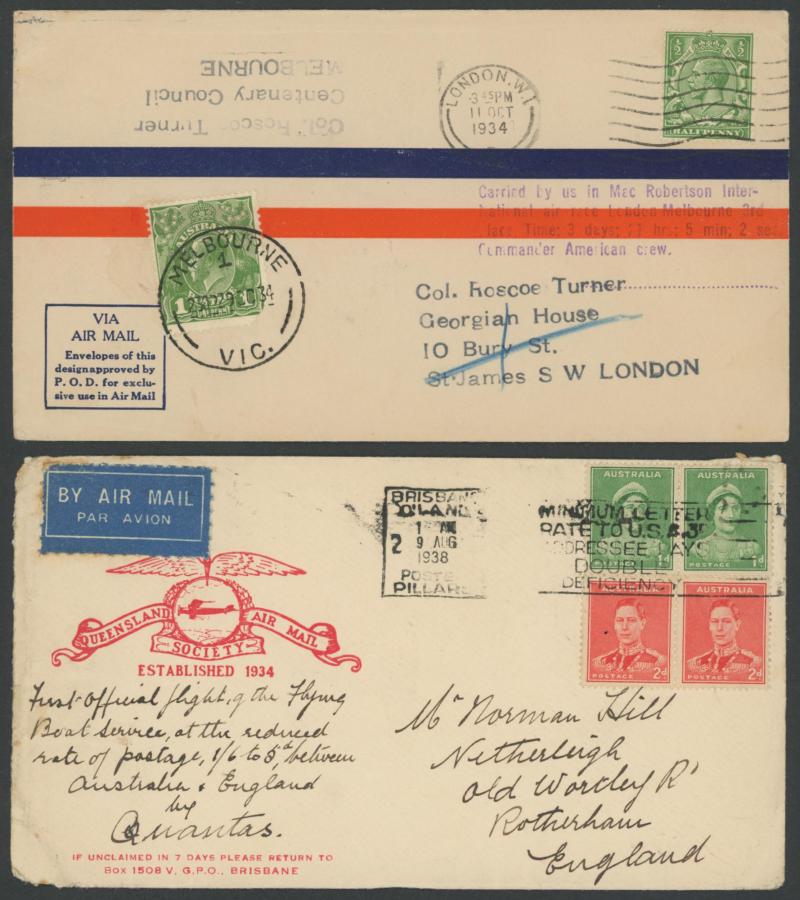 Col. Roscoe Turner
Centenary Council
MELBOURNE
LONDON.W.1
3 45PM
11 OCT
1934
½ ½
HALFPENNY
Carried by us in Mac Robertson Inter-
National air race London Melbourne 3rd
Place. Time: 3 days; 21 hrs; 5 min; 2 sec
Commander American crew.
AUSTRALIA
1 1
MELBOURNE
1
VIC.
Col. Roscoe Turner
Georgian House
10 Bury St.
St.James S W LONDON
VIA
AIR MAIL
Envelopes of this
design approved by
P. O. D. for exclu-
sive use in Air Mail
BY AIR MAIL
PAR AVION
BRISBANE
Q'LAND
1 AM
2 9 AUG
1938
POSTE
PILLARS
MINIMUM LETTER
RATE TO U.S.
ADDRESSEE PAYS
DOUBLE
DEFICIENCY
AUSTRALIA AUSTRALIA
1d 1d
POSTAGE POSTAGE
2d 2d
QUEENSLAND AIR MAIL
SOCIETY
ESTABLISHED 1934
First Official flight, of the Flying
Boat Service, at the reduced
rate of postage, 1/6 to 5d, between
Australia & England
by
Quantas.
Mr Norman Hill
Netherleigh
Old Wortley Rd
Rotherham
England
IF UNCLAIMED IN 7 DAYS PLEASE RETURN TO
BOX 1508 V, G.P.O., BRISBANE